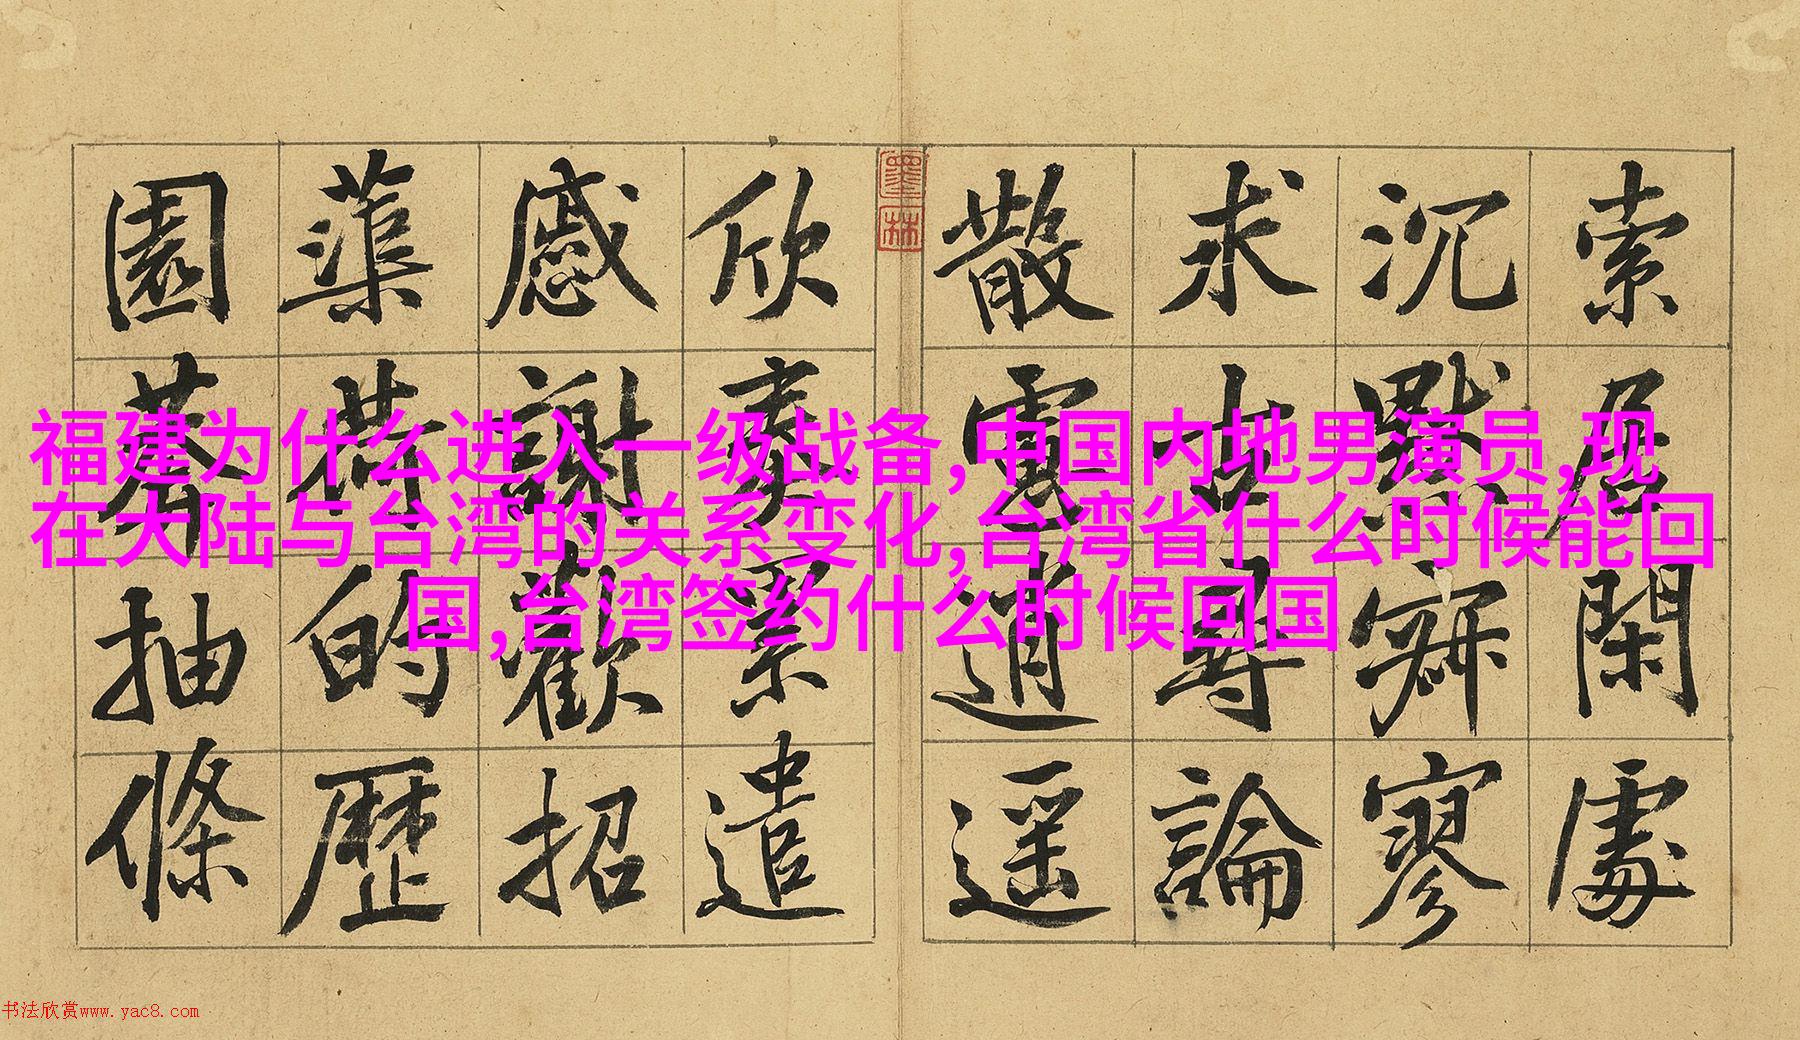 福建为什么进入一级战备,中国内地男演员,现
在大陆与台湾的关系变化,台湾省什么时候能回
国,台湾签约什么时候回国
索居閑處
沉默寂寥
求古尋論
散慮逍遥
墨林
欣奏累遣
慼謝歡招
蕖荷的歷
園莽抽條
书法欣赏www.yac8.com